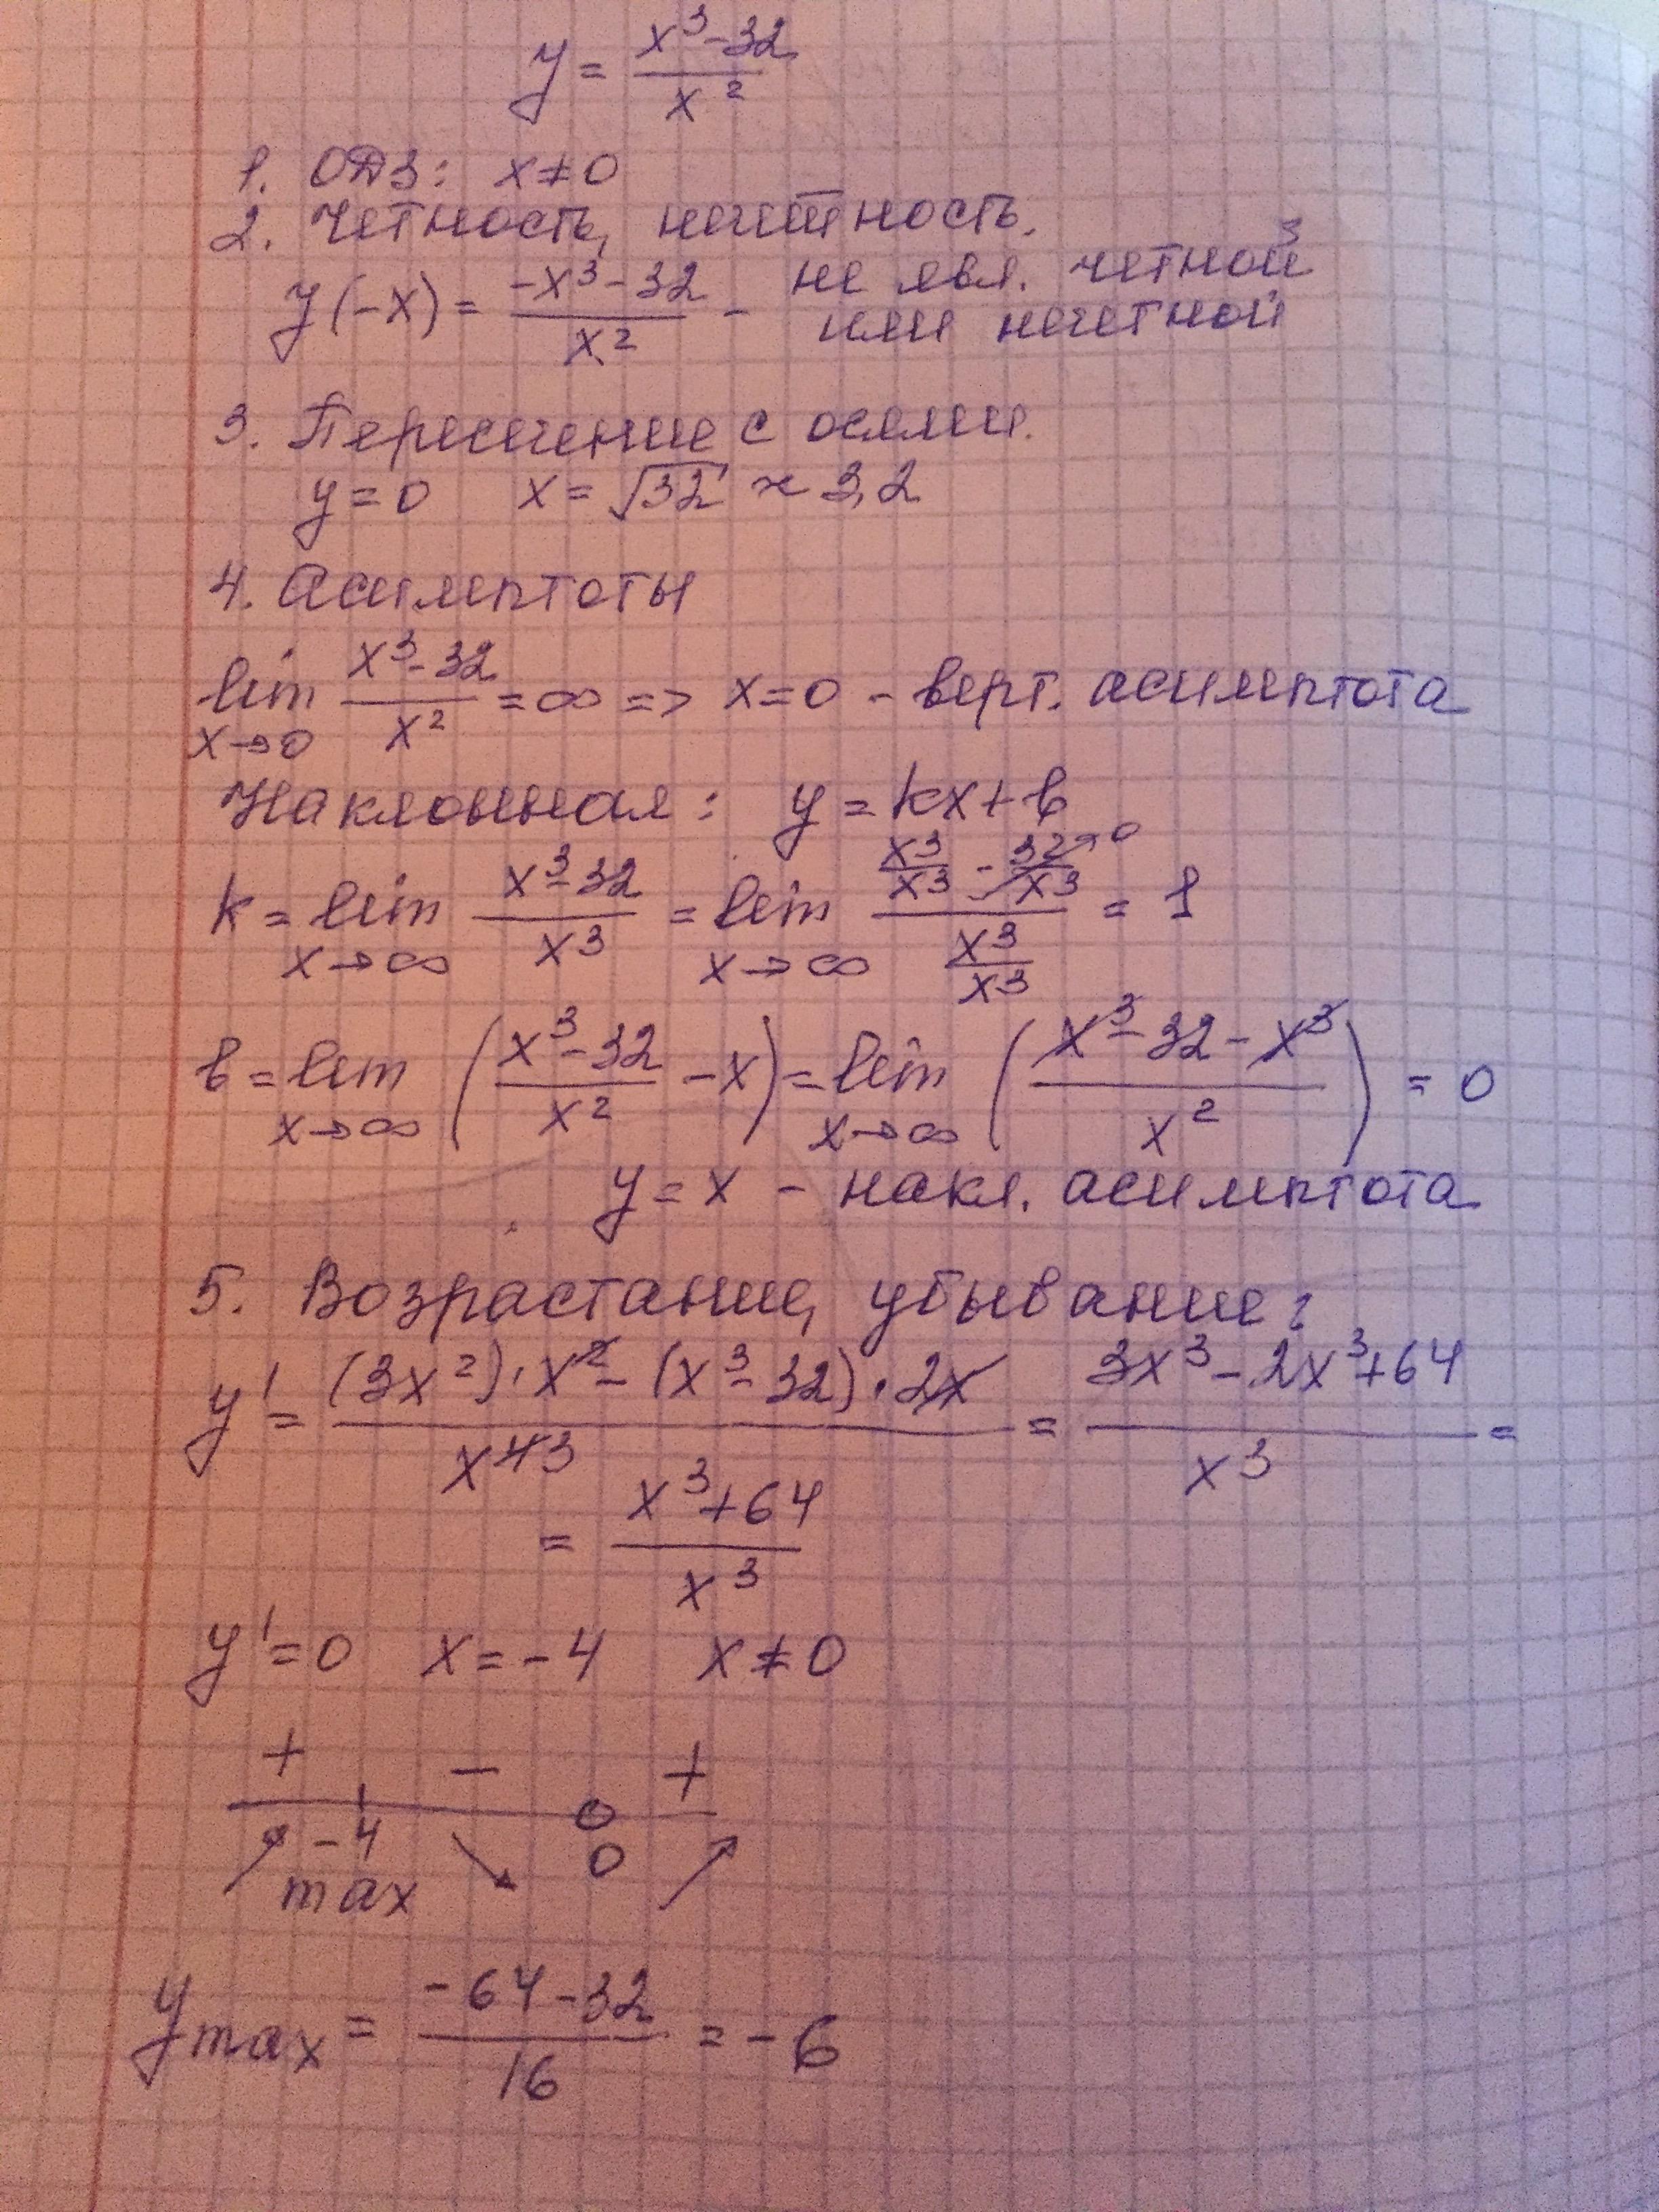 y = (x³-32)/x²
1. ОДЗ: x≠0
2. Четность, нечетность.
y(-x) = (-x³-32)/x² - не явл. четной
или нечетной
3. Пересечение с осями.
y=0 x=√32 ≈ 3,2
4. Асимптоты
lim x→0 (x³-32)/x² = ∞ => x=0 - верт. асимптота
Наклонная: y=kx+b
k = lim x→∞ (x³-32)/x³ = lim x→∞ (x³/x³ - 32/x³ →0)/(x³/x³) = 1
b = lim x→∞ ((x³-32)/x² - x) = lim x→∞ ((x³-32-x³)/x²) = 0
y=x - накл. асимптота
5. Возрастание, убывание:
y' = ((3x²)·x² - (x³-32)·2x)/x⁴³ = (3x³-2x³+64)/x³ =
= (x³+64)/x³
y'=0 x=-4 x≠0
+ - +
-4 0
max
y max = (-64-32)/16 = -6